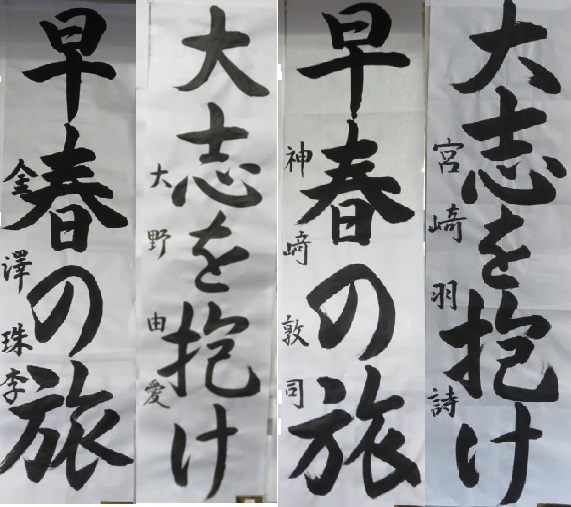 大志を抱け
宮﨑羽詩
早春の旅
神﨑敦司
大志を抱け
大野由愛
早春の旅
金澤珠李